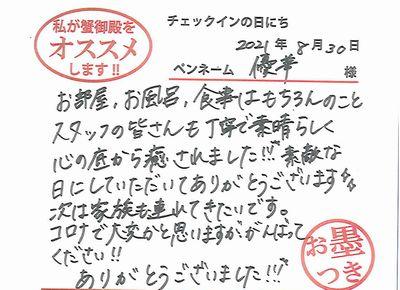 私が蟹御殿を
オススメ
します!!
チェックインの日にち
2021年 8月30日
ペンネーム 優華 様
お部屋、お風呂、食事はもちろんのこと
スタッフの皆さんも丁寧で素晴らしく
心の底から癒されました!!! 素敵な
日にしていただいてありがとうございます
次は家族も連れてきたいです。
コロナで大変かと思いますががんばって
ください!!
ありがとうございました!!!
お墨
つき